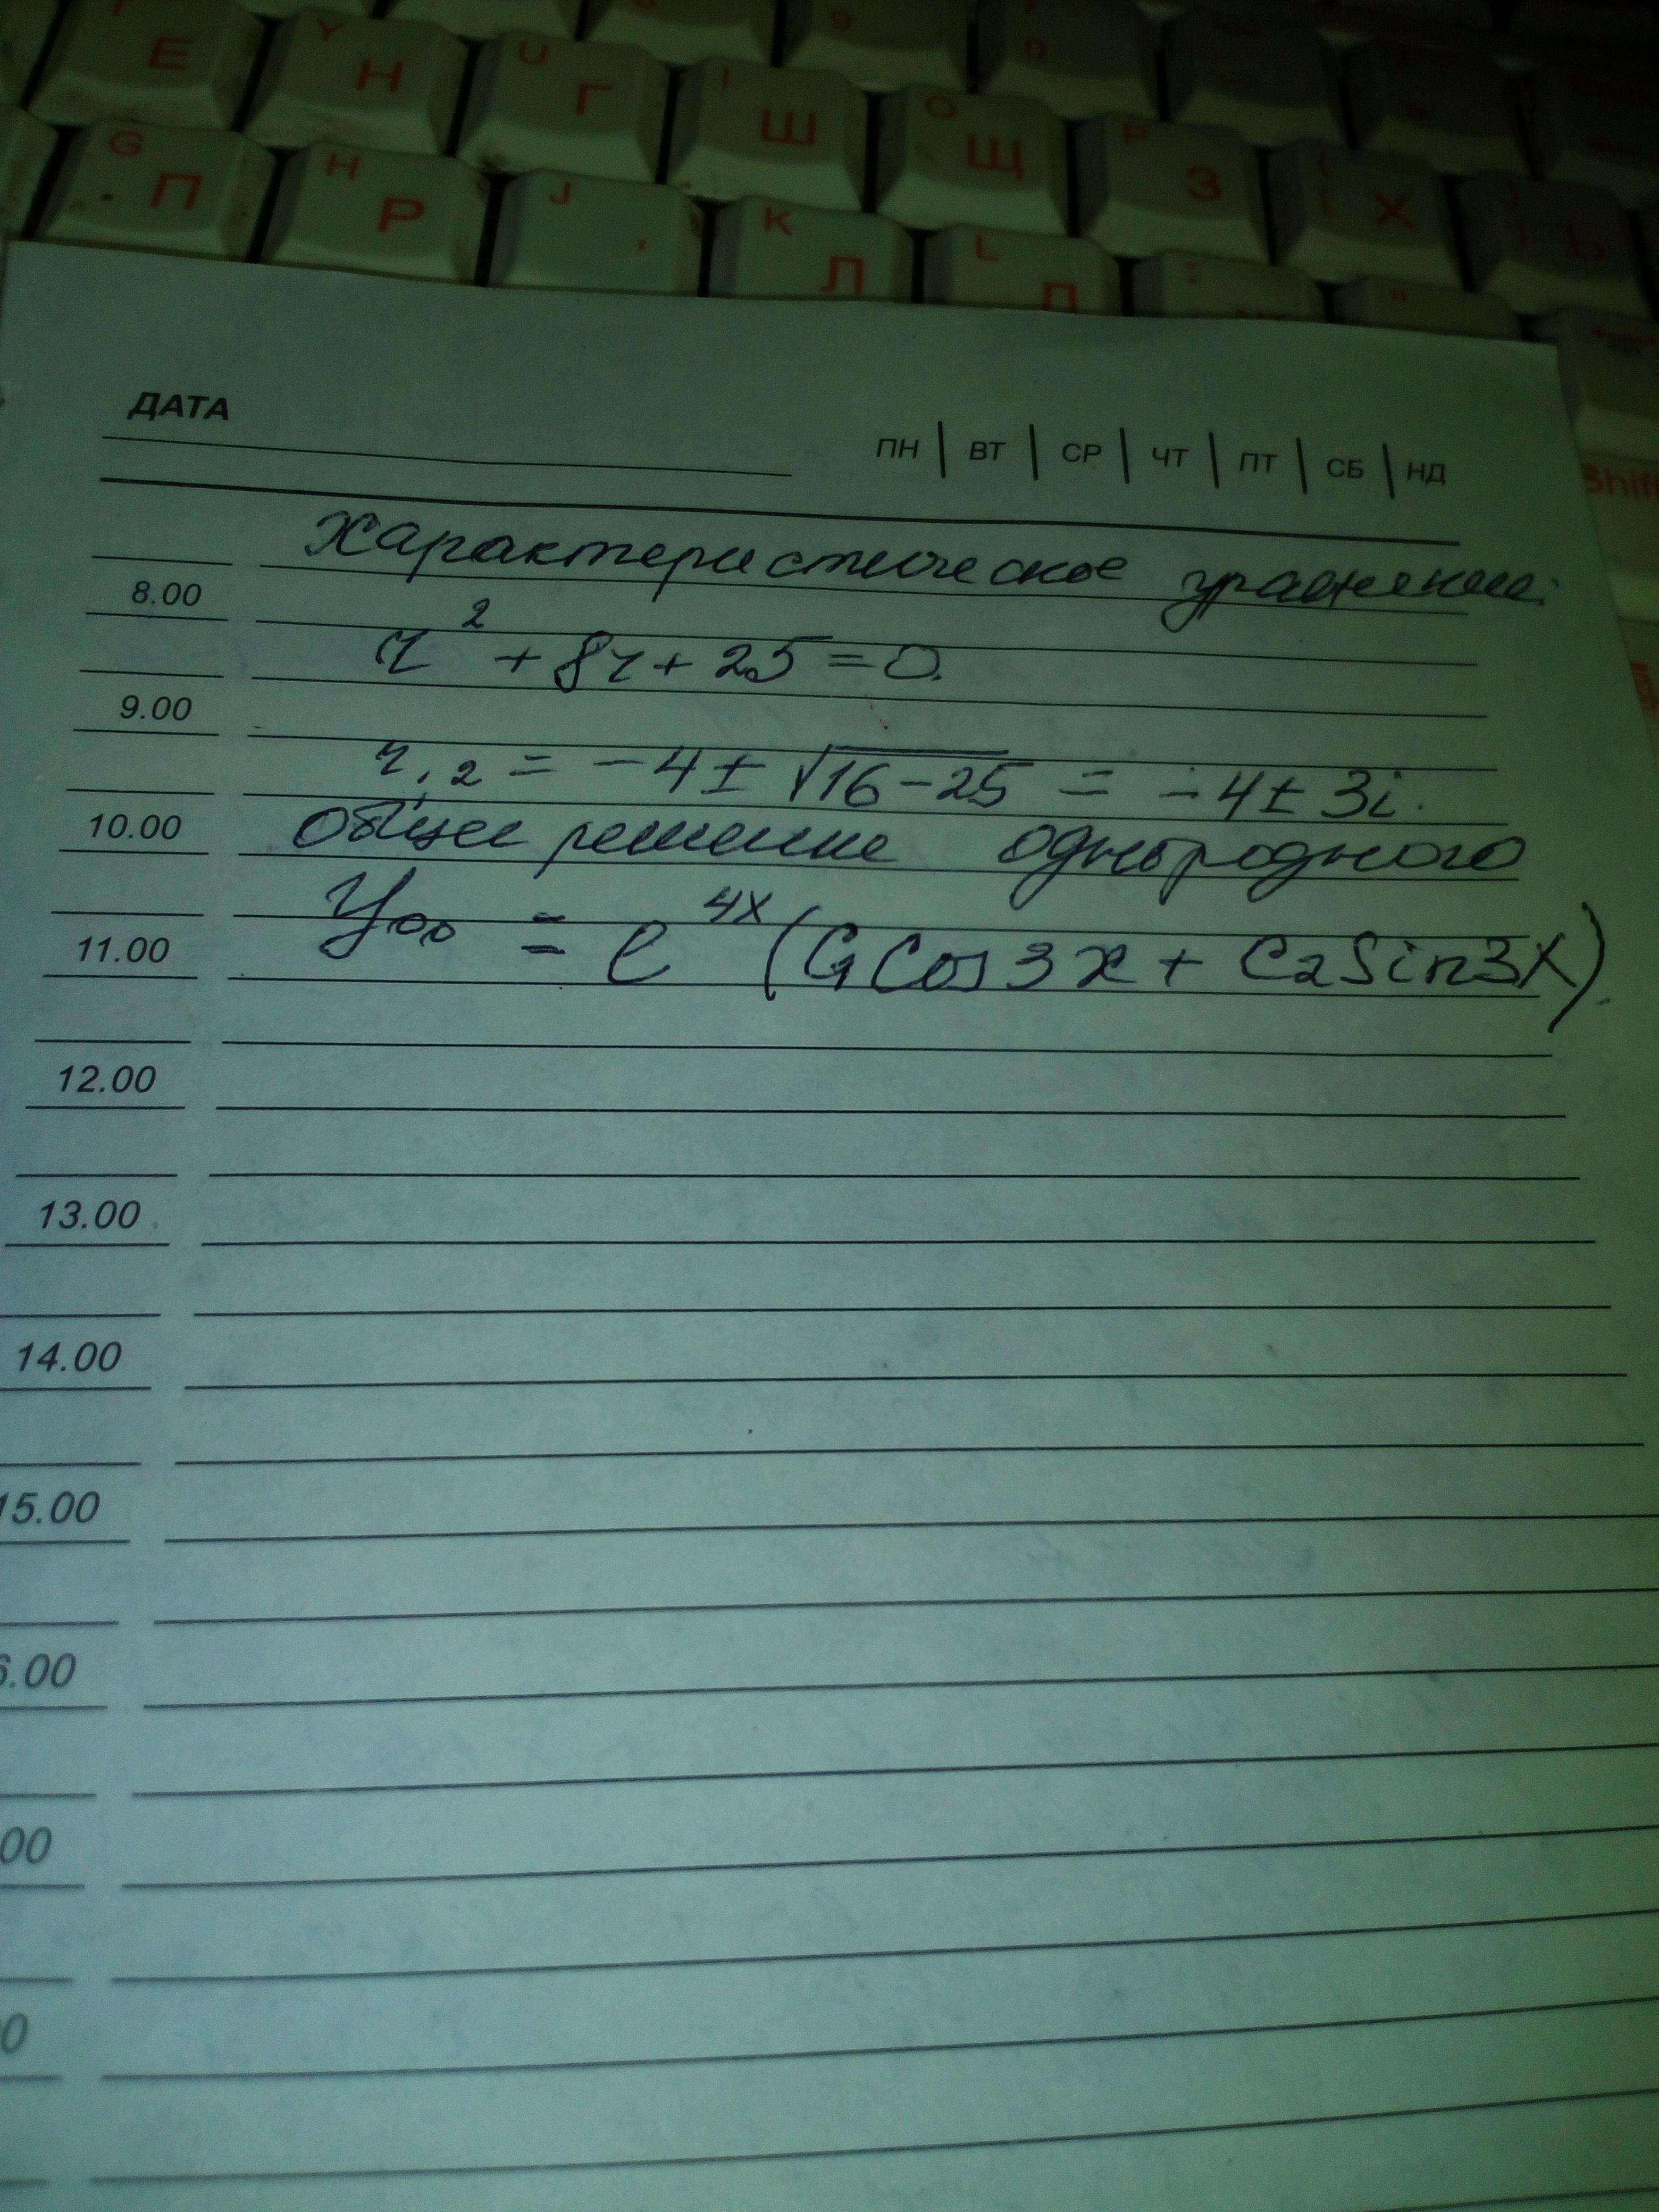 E Y Н U Г I Ш O Щ P З Х Ъ
G П H Р J K Л L Д
Shift
ДАТА
ПН | ВТ | СР | ЧТ | ПТ | СБ | НД
Характеристическое уравнение:
8.00
r² + 8r + 25 = 0.
9.00
r₁,₂ = -4 ± √16-25 = -4 ± 3i.
10.00 общее решение однородного
11.00 Yоо = e^4x (C1 Cos3x + C2 Sin3x).
12.00
13.00
14.00
15.00
6.00
00
0